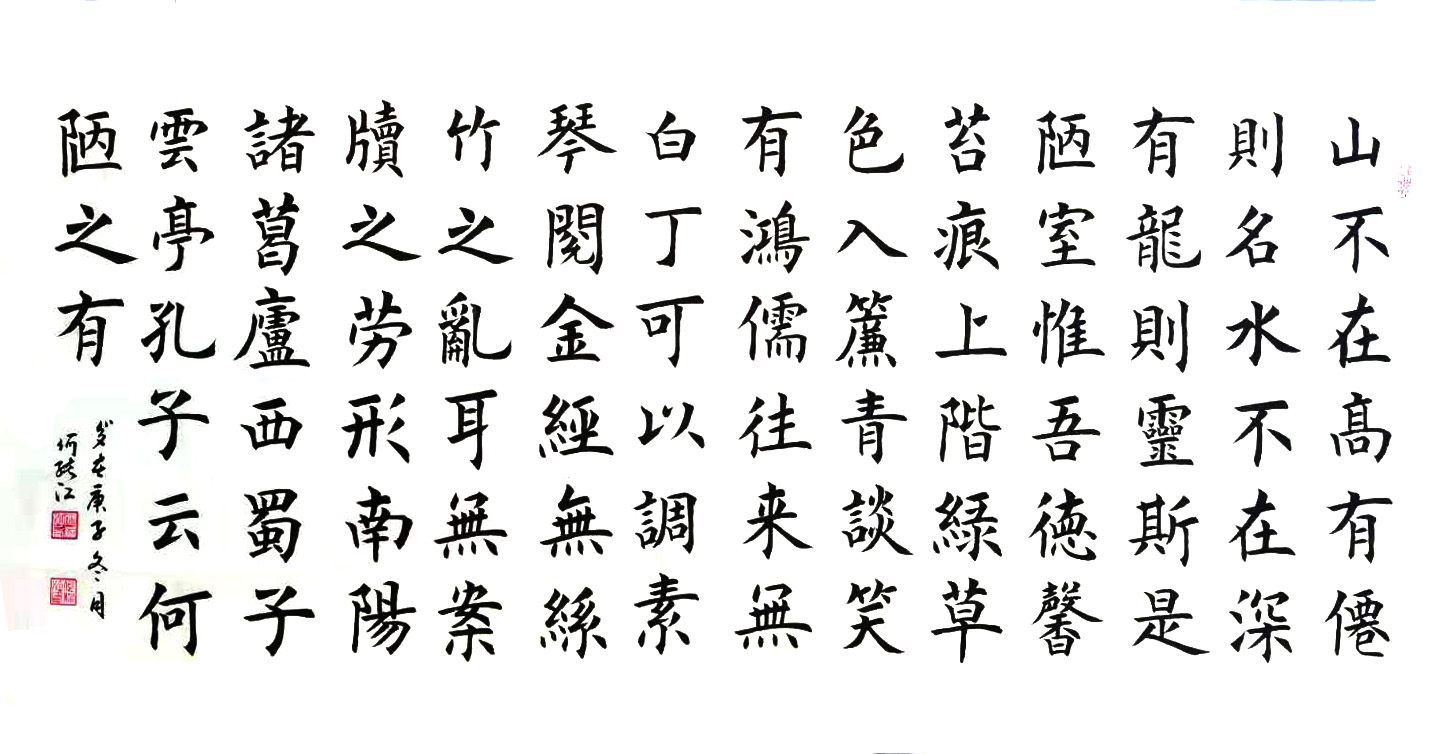 山不在高有僊
則名水不在深
有龍則靈斯是
陋室惟吾徳馨
苔痕上階緑草
色入簾青談笑
有鴻儒往来無
白丁可以調素
琴閱金經無絲
竹之亂耳無案
牘之劳形南陽
諸葛廬西蜀子
雲亭孔子云何
陋之有
岁在庚子冬月